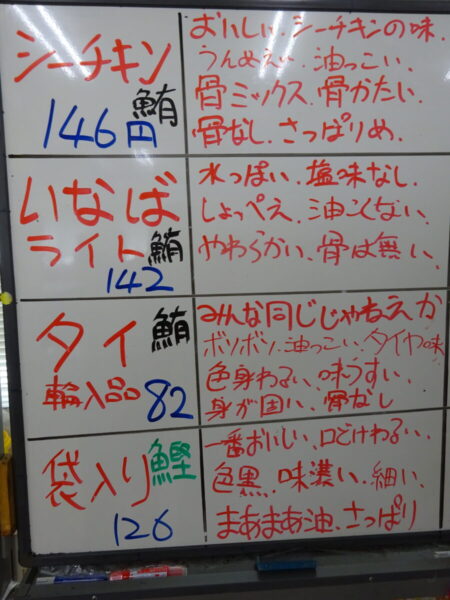 シーチキン
鮪
146円
おいしい、シーチキンの味、
うんめえい、油っこい、
骨ミックス、骨かたい、
骨なし、さっぱりめ、
いなば
ライト鮪
142
水っぽい、塩味なし、
しょっぺえ、油こくない、
やわらかい、骨は無い、
タイ鮪
輸入品 82
みんな同じじゃねえか
ボソボソ、油っこい、タイヤ味
色身わるい、味うすい、
身が固い、骨なし
袋入り鰹
126
一番おいしい、口どけわるい、
色黒、味濃い、細い、
まあまあ油、さっぱり